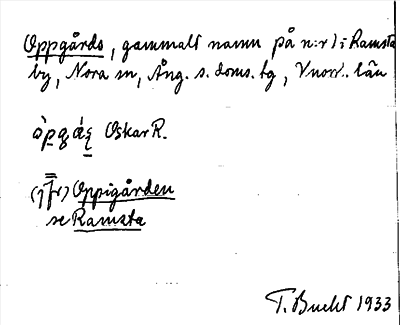 Oppgårds, gammalt namn på n:r 1 i Ramsta
by, Nora sn, Ång. s. doms. tg, Vnorr. län
Oskar R.
(jfr) Oppigården
se Ramsta
T. Bucht 1933